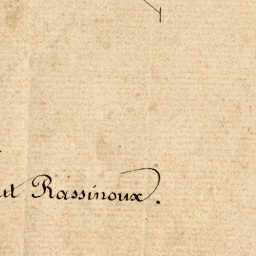 ut Rassinoux.